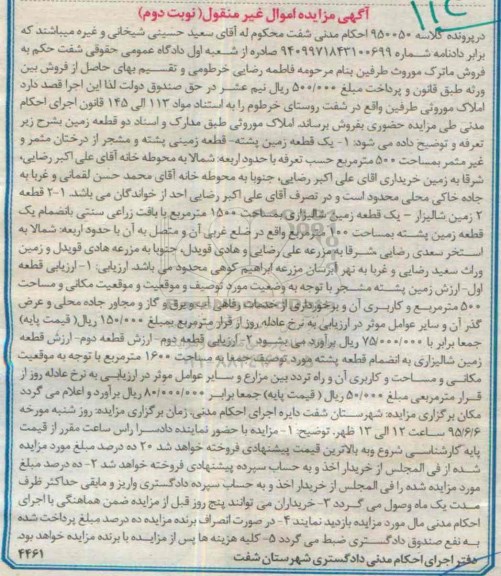 ۱۱۲
آگهی مزایده اموال غیر منقول( نوبت دوم)
درپرونده کلاسه ۹۵۰۰۵۰ احکام مدنی شفت محکوم له آقای سعید حسینی شیخانی و غیره میباشند که
برابر دادنامه شماره ۹۴۰۹۹۷۱۸۴۳۱۰۰۶۹۹ صادره از شعبه اول دادگاه عمومی حقوقی شفت حکم به
فروش ماترک موروث طرفین بنام مرحومه فاطمه رضایی خرطومی و تقسیم بهای حاصل از فروش بین
ورثه طبق قانون و پرداخت مبلغ ۵۰۰/۰۰۰ ریال نیم عشر در حق صندوق دولت لذا این اجرا قصد دارد
املاک موروثی طرفین واقع در شفت روستای خرطوم را به استناد مواد ۱۱۳ الی ۱۴۵ قانون اجرای احکام
مدنی طی مزایده حضوری بفروش برساند. املاک موروثی طبق مدارک و اسناد دو قطعه زمین بشرح زیر
تعرفه و توضیح داده می شود: ۱- یک قطعه زمین پشته- قطعه زمینی پشته و مشجر از درختان مثمر و
غیر مثمر بمساحت ۵۰۰ مترمربع حسب تعرفه با حدود اربعه: شمالا به محوطه خانه آقای علی اکبر رضایی،
شرقا به زمین خریداری اقای علی اکبر رضایی، جنوبا به محوطه خانه آقای محمد حسن لقمانی و غربا به
جاده خاکی محلی محدود است و در تصرف آقای علی اکبر رضایی احد از خواندگان می باشد. ۱-۲ قطعه
۲ زمین شالیزار – یک قطعه زمین شالیزاری بمساحت ۱۵۰۰ مترمربع با بافت زراعی سنتی بانضمام یک
قطعه زمین پشته بمساحت ۱۰۰ مترمربع واقع در ضلع غربی آن و متصل به آن با حدود اربعه: شمالا به
استخر سعدی رضایی شرقا به مزرعه علی رضایی و هادی قویدل، جنوبا به مزرعه هادی قویدل و زمین
وراث سعید رضایی و غربا به نهر آبرسان مزرعه ابراهیم کوهی محدود می باشد. ارزیابی: ۱- ارزیابی قطعه
اول- ارزش زمین پشته مشجر با توجه به وضعیت مورد توصیف و موقعیت و موقعیت مکانی و مساحت
۵۰۰ مترمربع و کاربری آن و برخورداری از خدمات رفاهی آب و برق و گاز و مجاور جاده محلی و عرض
گذر آن و سایر عوامل موثر در ارزیابی به نرخ عادله روز از قرار مترمربع بمبلغ ۱۵۰/۰۰۰ ریال( قیمت پایه)
جمعا برابر با ۷۵/۰۰۰/۰۰۰ ریال برآورد می بشود ۲- ارزیابی قطعه دوم- ارزش قطعه دوم- ارزش قطعه
زمین شالیزاری به انضمام قطعه پشته مورد توصیف جمعا به مساحت ۱۶۰۰ مترمربع با توجه به موقعیت
مکانی و مساحت و کاربری آن و راه تردد بین مزارع و سایر عوامل موثر در ارزیابی به نرخ عادله روز از
قرار مترمربعی مبلغ ۵۰/۰۰۰ ریال ( قیمت پایه) جمعا برابر ۸۰/۰۰۰/۰۰۰ ریال برآورد و اعلام می گردد
مکان برگزاری مزایده: شهرستان شفت دایره اجرای احکام مدنی. زمان برگزاری مزایده: روز شنبه مورخه
۹۵/۶/۶ ساعت ۱۲ الی ۱۳ ظهر. توضیح: ۱- مزایده با حضور نماینده دادسرا راس ساعت مقرر از قیمت
پایه کارشناسی شروع وبه بالاترین قیمت پیشنهادی فروخته خواهد شد ۲۰ ده درصد مبلغ مورد مزایده
شده از فی المجلس از خریدار اخذ و به حساب سپرده پیشنهادی فروخته خواهد شد ۲- ده درصد مبلغ
مورد مزایده شده را فی المجلس از خریدار اخذ و به حساب سپرده دادگستری واریز و مابقی حداکثر ظرف
مدت یک ماه وصول می گردد ۳- خریداران می توانند پنج روز قبل از مزایده ضمن هماهنگی با اجرای
احکام مدنی مال مورد مزایده بازدید نمایند ۴- در صورت انصراف برنده مزایده ده درصد مبلغ پرداخت شده
به نفع صندوق دادگستری ضبط می گردد ۵- کلیه هزینه ها پس از مزایده با برنده مزایده خواهد بود.
دفتر اجرای احکام مدنی دادگستری شهرستان شفت ۴۴۶۱